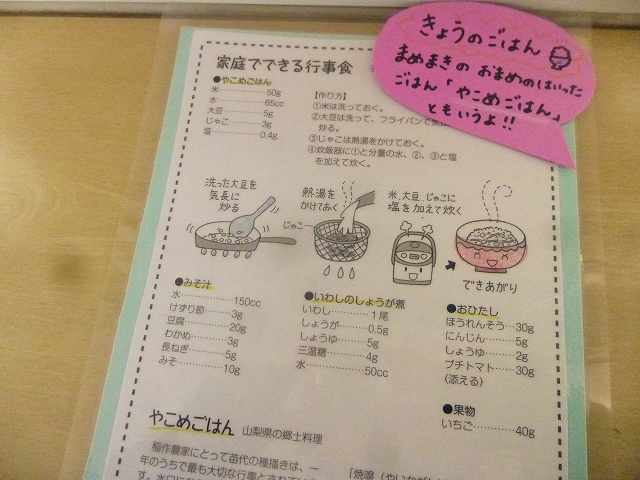 きょうのごはん
まめまきの おまめのはいった
ごはん「やこめごはん」
ともいうよ!!
家庭でできる行事食
●やこめごはん
米 50g
水 65cc
大豆 5g
じゃこ 3g
塩 0.4g
【作り方】
①米は洗っておく。
②大豆は洗って、フライパンで
炒る。
③じゃこは熱湯をかけておく。
④炊飯器に①と分量の水、②、③と塩
を加えて炊く。
洗った大豆を
気長に
炒る
熱湯を
かけておく
じゃこ
米、大豆、じゃこに
塩を加えて炊く
できあがり
●みそ汁
水 150cc
けずり節 3g
豆腐 20g
わかめ 3g
長ねぎ 5g
みそ 10g
●いわしのしょうが煮
いわし 1尾
しょうが 0.5g
しょうゆ 5g
三温糖 4g
水 50cc
●おひたし
ほうれんそう 30g
にんじん 5g
しょうゆ 2g
プチトマト 30g
(添える)
●果物
いちご 40g
やこめごはん 山梨県の郷土料理
稲作農家にとって苗代の種播きは、一
年のうちで最も大切な行事とされてい
「焼嗅(やいかがし